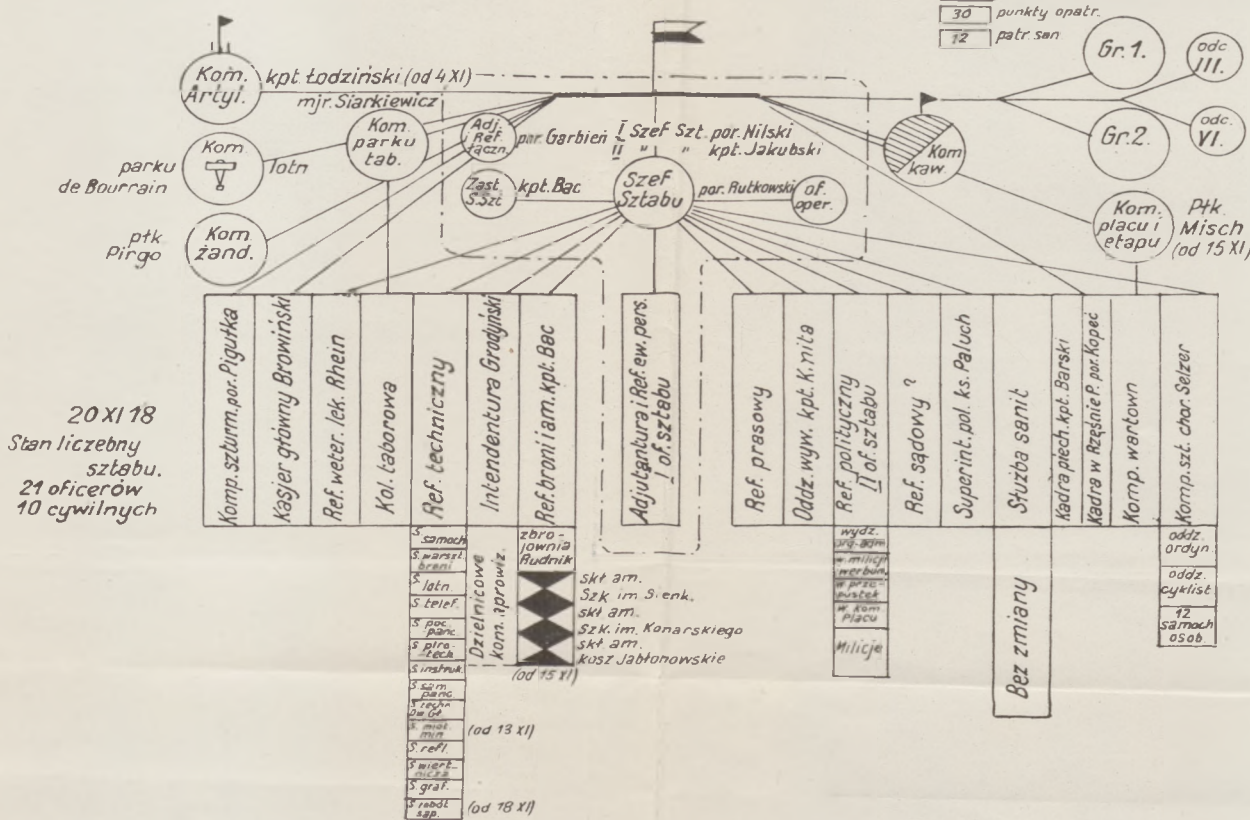 30 punkty opatr.
12 patr. san
Kom.
Artyl.
kpt. Łodziński (od 4 XI)
mjr. Siarkiewicz
Kom.
parku
tab.
Adj.
i Ref.
łączn.
por. Garbień
I Szef Szt. por. Nilski
II " " kpt. Jakubski
Kom
kaw.
Gr. 1.
Gr. 2.
odc
III.
odc.
VI.
parku
de Bourrain
Kom
lotn
Zast
S. Szt
kpt. Bac
Szef
Sztabu
por. Rutkowski
of.
oper.
Kom.
placu i
etapu
Płk.
Misch
(od 15 XI)
płk
Pirgo
Kom
żand.
20 XI 18
Stan liczebny
sztabu.
21 oficerów
10 cywilnych
Komp. szturm. por. Pigułka
Kasjer główny Browiński
Ref. weter. lek. Rhein
Kol. taborowa
Ref. techniczny
Intendentura Grodyński
Ref. broni i am. kpt. Bac
Adjutantura i Ref. ew. pers.
I of. sztabu
Ref. prasowy
Oddz. wyw. kpt. Knita
Ref. polityczny
II of. sztabu
Ref. sądowy ?
Superint. pol. ks. Paluch
Służba sanit
Kadra piech. kpt. Barski
Kadra w Rzęśnie P. por. Kopeć
Komp. wartown
Komp. szt. chor. Selzer
S.
samoch
S. warszt.
broni
S.
lotn.
S. telef.
S. poc.
panc.
S. piro-
tech
S. instruk.
S. sam
panc
S. techn
Dw. Gł.
S. miot.
min
(od 13 XI)
S. refl.
S wiert-
nicza
S. graf.
S robót
sap.
(od 18 XI)
Dzielnicowe
kom. aprowiz.
zbro-
jownia
Rudnik
skł am.
Szk im. Sienk.
skł am.
Szk. im. Konarskiego
skł am.
kosz Jabłonowskie
(od 15 XI)
wydz.
org-adm
w. milicji
werbun.
w prze-
pustek
w. kom.
Placu
Milicje
Bez zmiany
oddz.
ordyn.
oddz.
cyklist
12
samoch
osob.